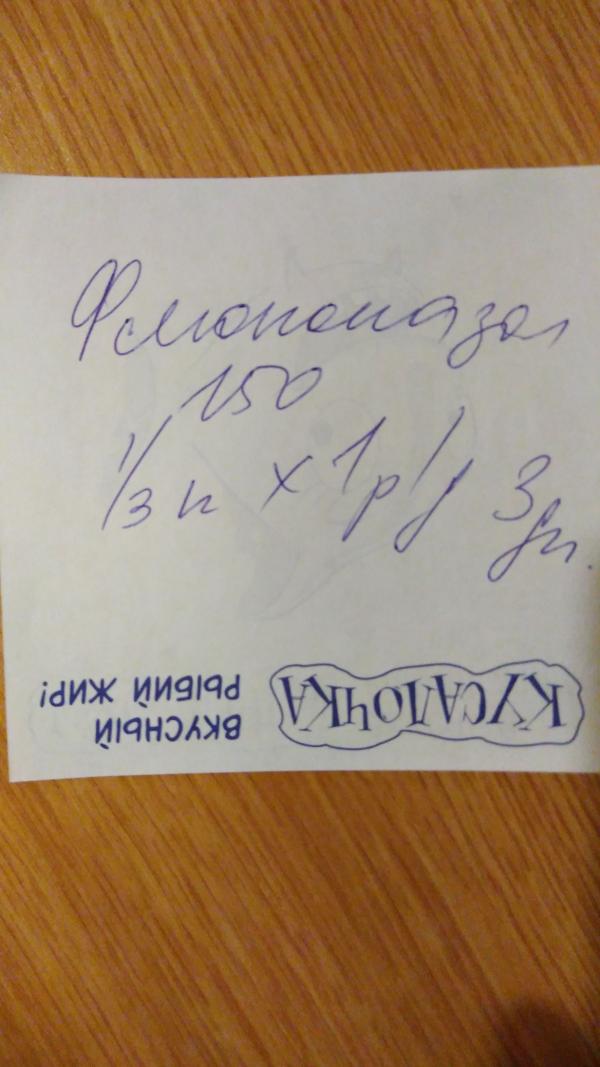 Флюконазол
150
1/3 к х 1 р/д 3 дн.
КУСАЛОЧКА
ВКУСНЫЙ
РЫБИЙ ЖИР!